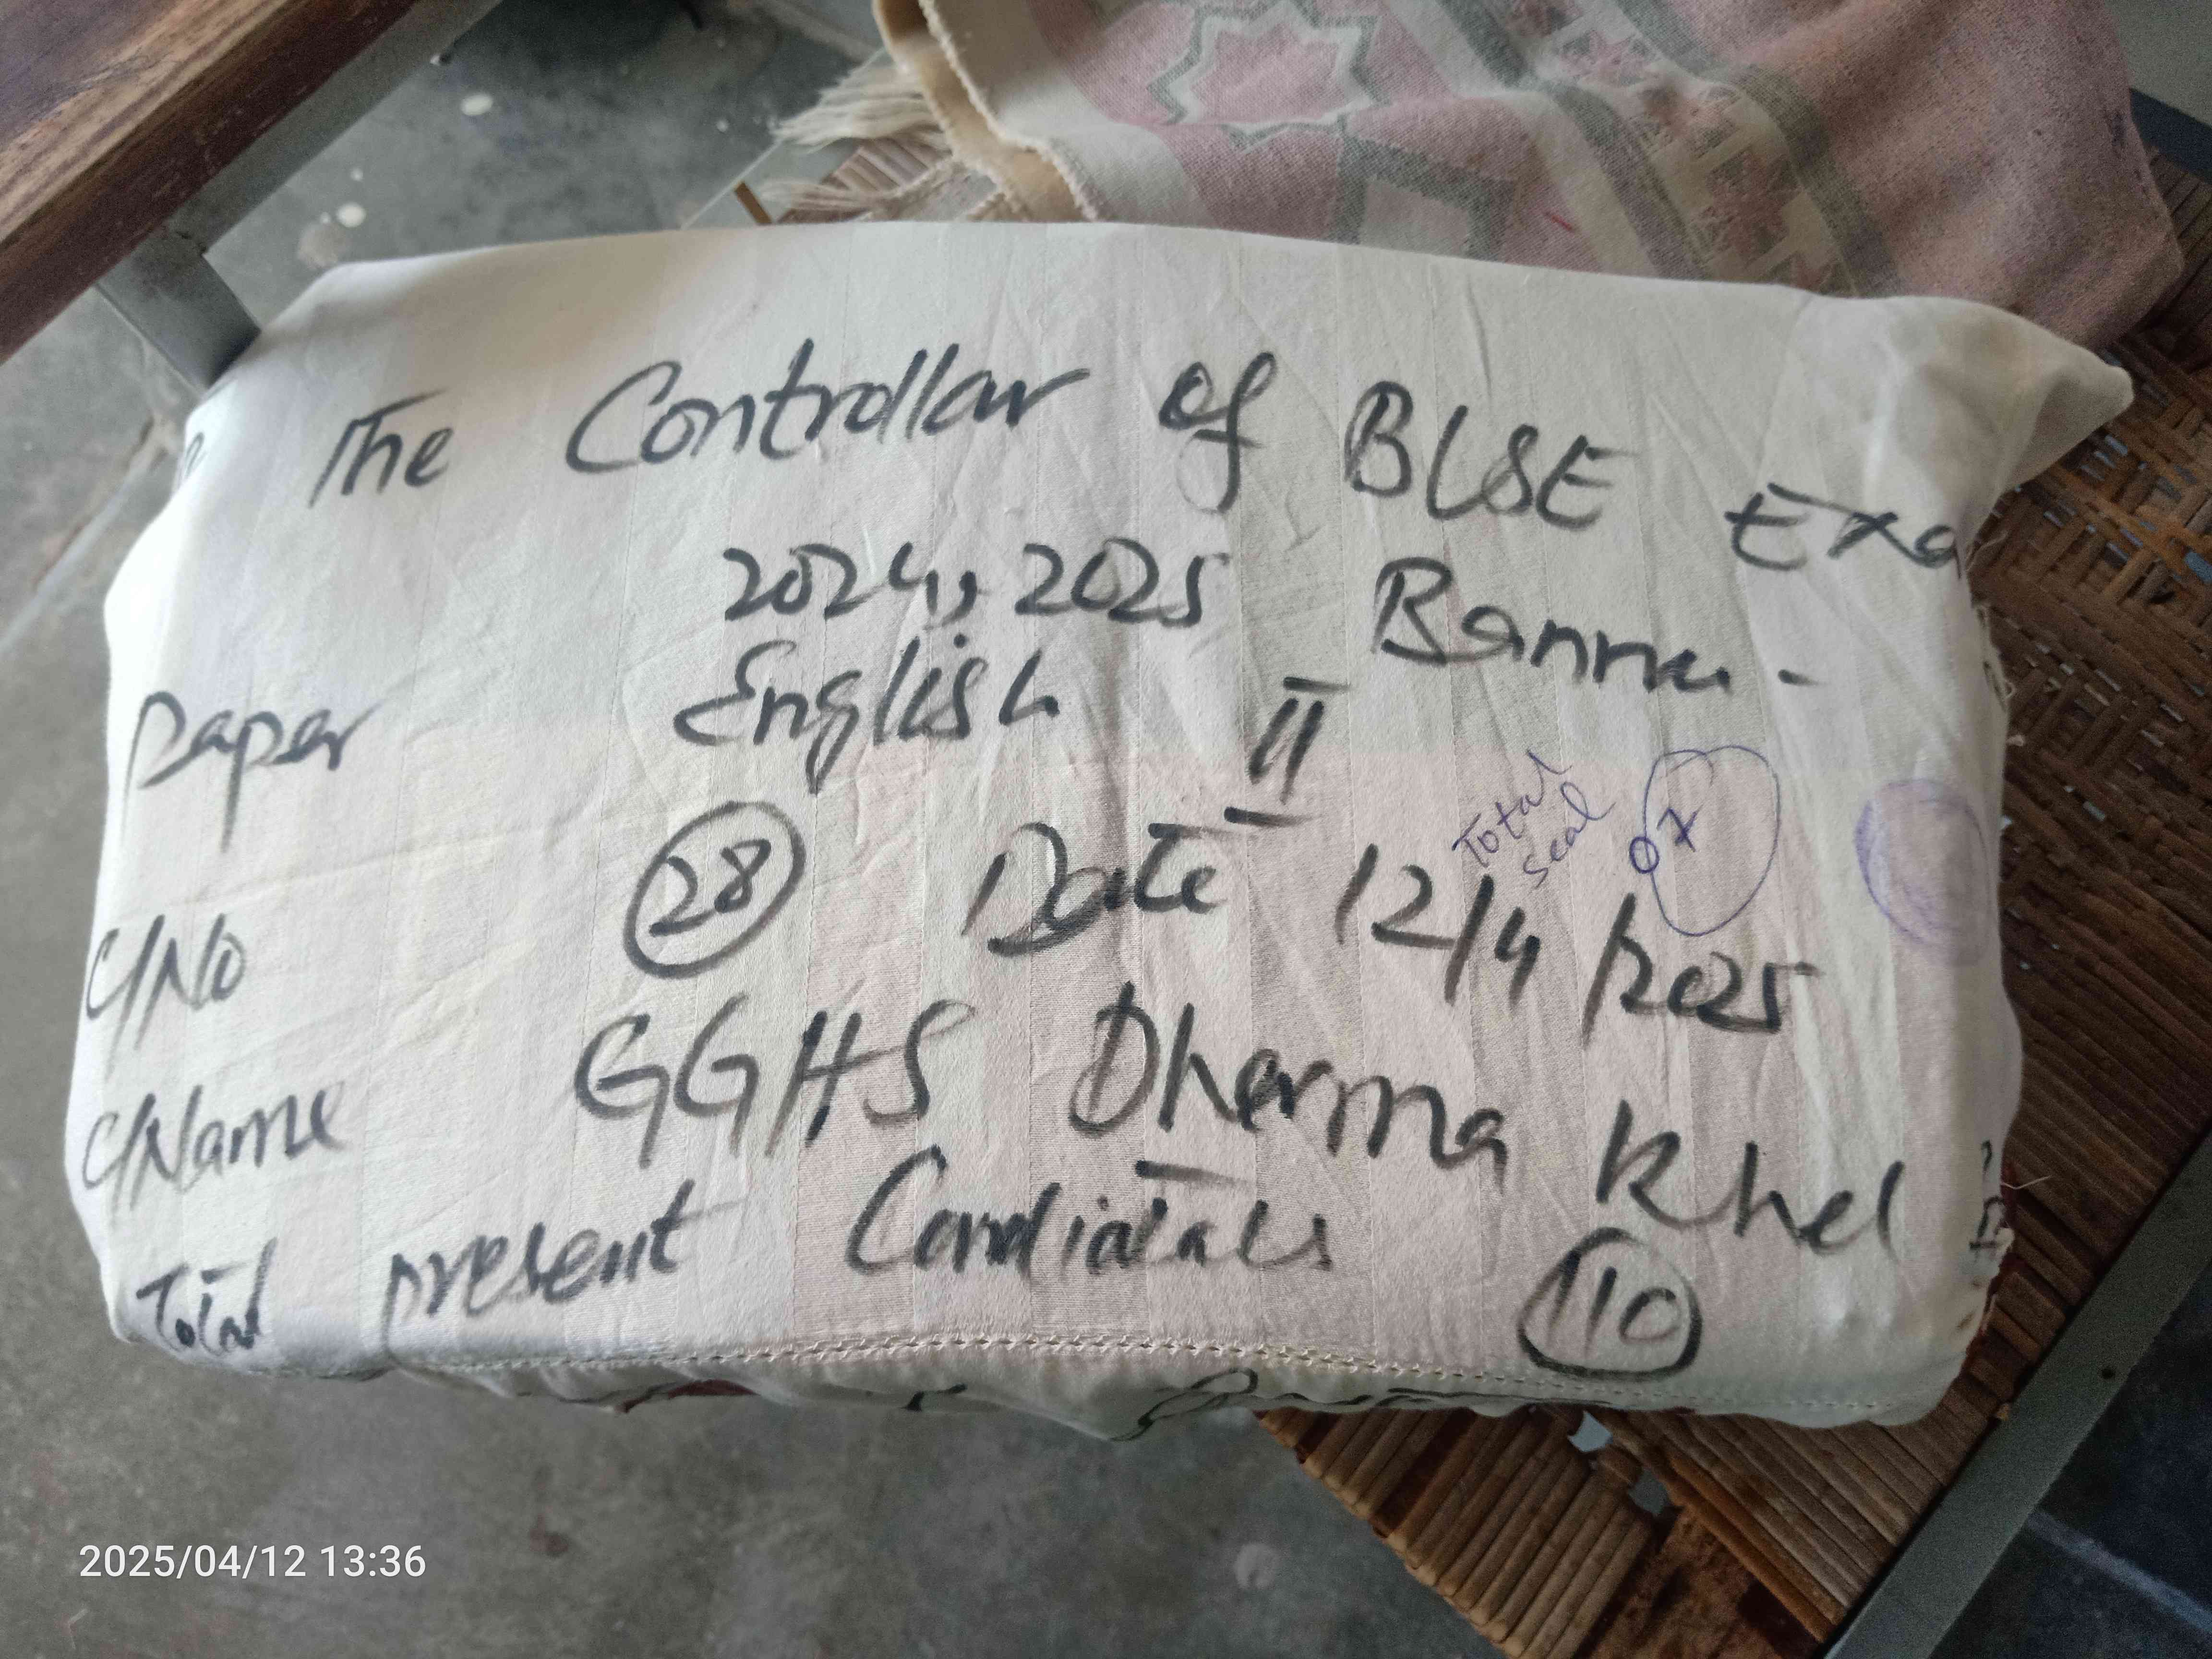 The Controllar of BISE Exa
2024, 2025 Bannu -
Paper English II
Total seal 07
C/No 28 Date 12/4/2025
C/Name GGHS Dherma Khel
Total present Candidates 110
2025/04/12 13:36